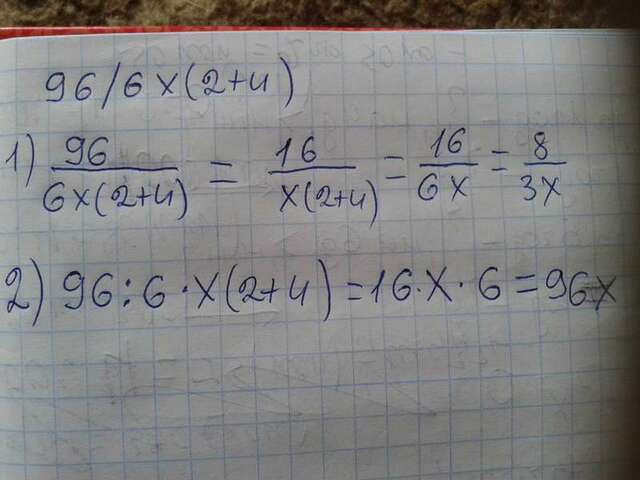 96/6x(2+4)
1) 96/6x(2+4) = 16/x(2+4) = 16/6x = 8/3x
2) 96:6·x(2+4)=16·x·6=96x